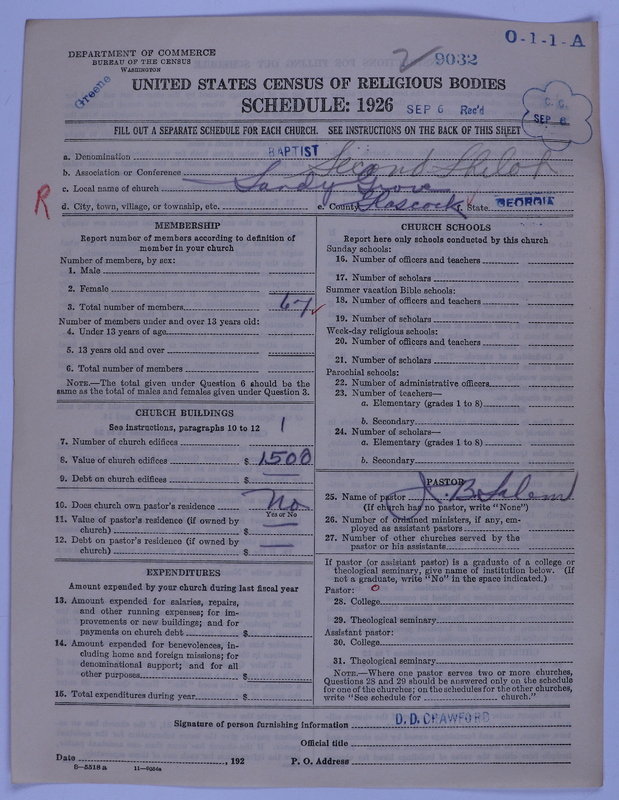 O-1-1-A
DEPARTMENT OF COMMERCE
BUREAU OF THE CENSUS
WASHINGTON
9032
Greene
UNITED STATES CENSUS OF RELIGIOUS BODIES
SCHEDULE: 1926 SEP 6 Rec'd
C. C. SEP 6
FILL OUT A SEPARATE SCHEDULE FOR EACH CHURCH. SEE INSTRUCTIONS ON THE BACK OF THIS SHEET
a. Denomination BAPTIST
b. Association or Conference Second Shiloh
c. Local name of church Sandy Grove
R
d. City, town, village, or township, etc. e. County Glascock f. State GEORGIA
MEMBERSHIP
Report number of members according to definition of
member in your church
Number of members, by sex:
1. Male
2. Female
3. Total number of members 67
Number of members under and over 13 years old:
4. Under 13 years of age
5. 13 years old and over
6. Total number of members
NOTE.—The total given under Question 6 should be the
same as the total of males and females given under Question 3.
CHURCH BUILDINGS
See instructions, paragraphs 10 to 12
7. Number of church edifices 1
8. Value of church edifices $ 1500
9. Debt on church edifices $ —
10. Does church own pastor's residence No
Yes or No
11. Value of pastor's residence (if owned by
church) $ —
12. Debt on pastor's residence (if owned by
church) $ —
EXPENDITURES
Amount expended by your church during last fiscal year
13. Amount expended for salaries, repairs,
and other running expenses; for im-
provements or new buildings; and for
payments on church debt $
14. Amount expended for benevolences, in-
cluding home and foreign missions; for
denominational support; and for all
other purposes $
15. Total expenditures during year $
CHURCH SCHOOLS
Report here only schools conducted by this church
Sunday schools:
16. Number of officers and teachers
17. Number of scholars
Summer vacation Bible schools:
18. Number of officers and teachers
19. Number of scholars
Week-day religious schools:
20. Number of officers and teachers
21. Number of scholars
Parochial schools:
22. Number of administrative officers
23. Number of teachers—
a. Elementary (grades 1 to 8)
b. Secondary
24. Number of scholars—
a. Elementary (grades 1 to 8)
b. Secondary
PASTOR
25. Name of pastor J. B. Salem
(If church has no pastor, write "None")
26. Number of ordained ministers, if any, em-
ployed as assistant pastors
27. Number of other churches served by the
pastor or his assistants
If pastor (or assistant pastor) is a graduate of a college or
theological seminary, give name of institution below. (If
not a graduate, write "No" in the space indicated.)
Pastor: O
28. College
29. Theological seminary
Assistant pastor:
30. College
31. Theological seminary
NOTE.—Where one pastor serves two or more churches,
Questions 28 and 29 should be answered only on the schedule
for one of the churches; on the schedules for the other churches,
write "See schedule for church."
Signature of person furnishing information D. D. CRAWFORD
Official title
Date , 192 P. O. Address
8-5518 a